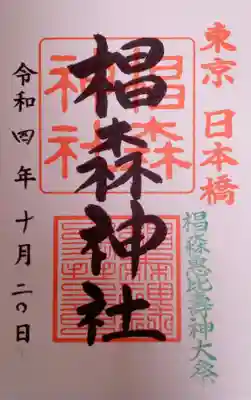 東京 日本橋
椙森惠比壽神大祭
椙森神社
椙森神社
令和四年十月二〇日